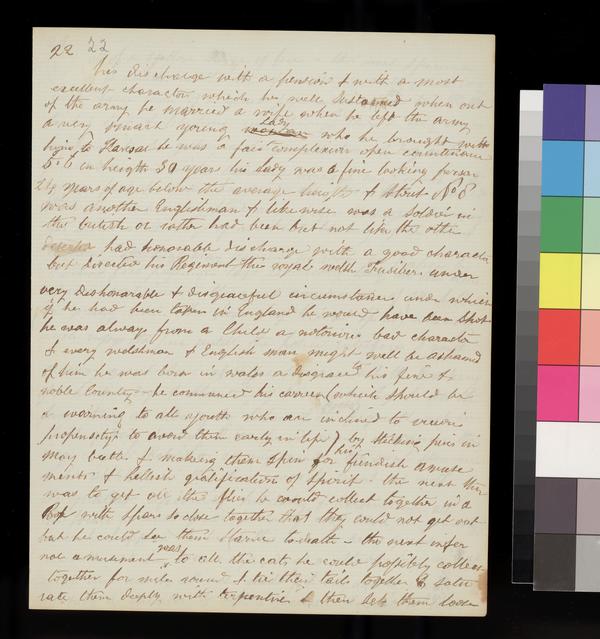 22 22
his discharge with a pension & with a most
excellent character which he well sustained when out
of the army he married a wife when he left the army
a very smart young lady who he brought with
him to Kansas he was a fair complexion open countenance
5-6 in heigth 30 years his lady was a fine looking person
24 years of age below the average height & stout No 8
was another Englishman & likewise was a Soldier in
the British or rather had been but not like the other
had honorable discharge with a good character
but his Regiment the royal welsh Fusiliers under
very dishonorable & disgraceful circumstances under which
if he had been taken in England he would have been Shot
he was always from a Child a notorious bad character
& every welshman & English man might well be ashamed
of him he was born in wales a disgrace to his fine &
noble Country he commenced his carreer (which should be
a worning to all youths who are inclined to
propensitys to avoid them early in life) by sticking pins in
may & making them spin for his fiendish amuse
ments & hellish gratification of Spirit. the next
was to get all the flies he could collect together in a
Box with Spars so close together that they could not get out
but he could see them starve to death - the next
amusement was to all the cats he could possibly collect
together for miles round & tie their tails together & satu
rate them deeply with terpentine & then lets them loose